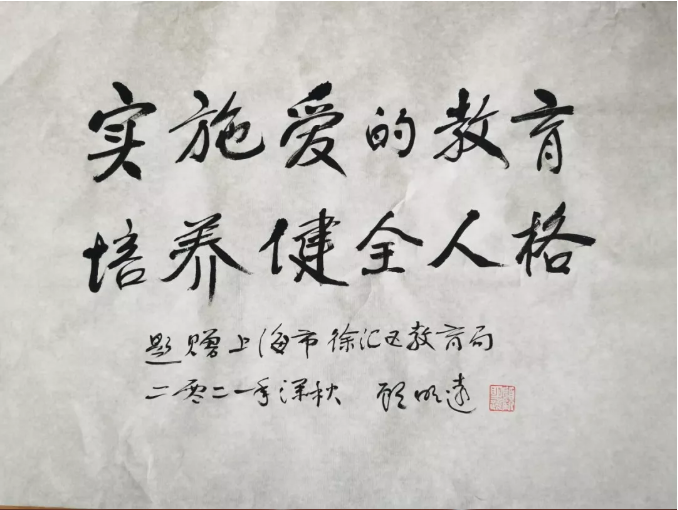 实施爱的教育
培养健全人格
题赠上海市徐汇区教育局
二零二一年深秋 顾明远